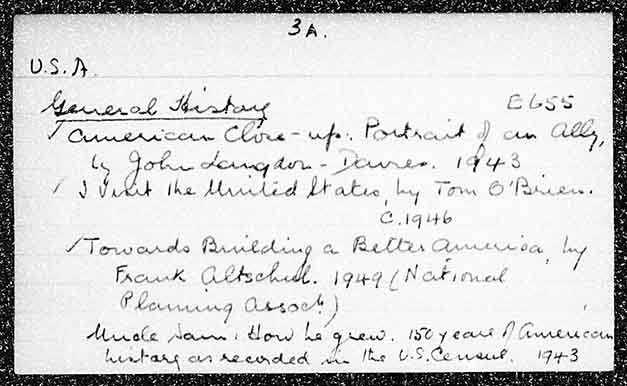 3A.
U.S.A.
General History E655
/ American Close-up. Portrait of an Ally,
by John Langdon-Davies. 1943
/ I Visit the United States, by Tom O'Brien.
C.1946
/ Towards Building a Better America, by
Frank Altschul. 1949 (National
Planning Assoc.)
Uncle Sam: How he grew. 150 years of American
history as recorded in the U.S. Census. 1943